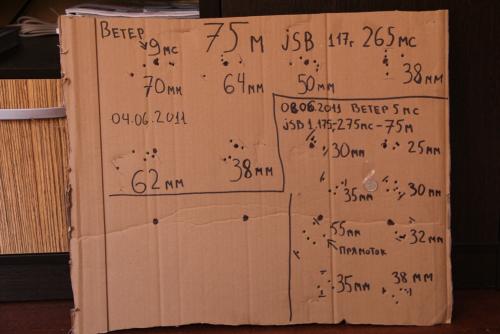 Ветер
9мс 75м jSB 1.17г 265мс
70мм 64мм 50мм 38мм
04.06.2011
62 мм 38мм
08.06.2011 Ветер 5мс
jSB 1.175г-275мс-75м
30мм 25мм
35мм 30мм
55мм 32мм
прямоток
35мм 38мм